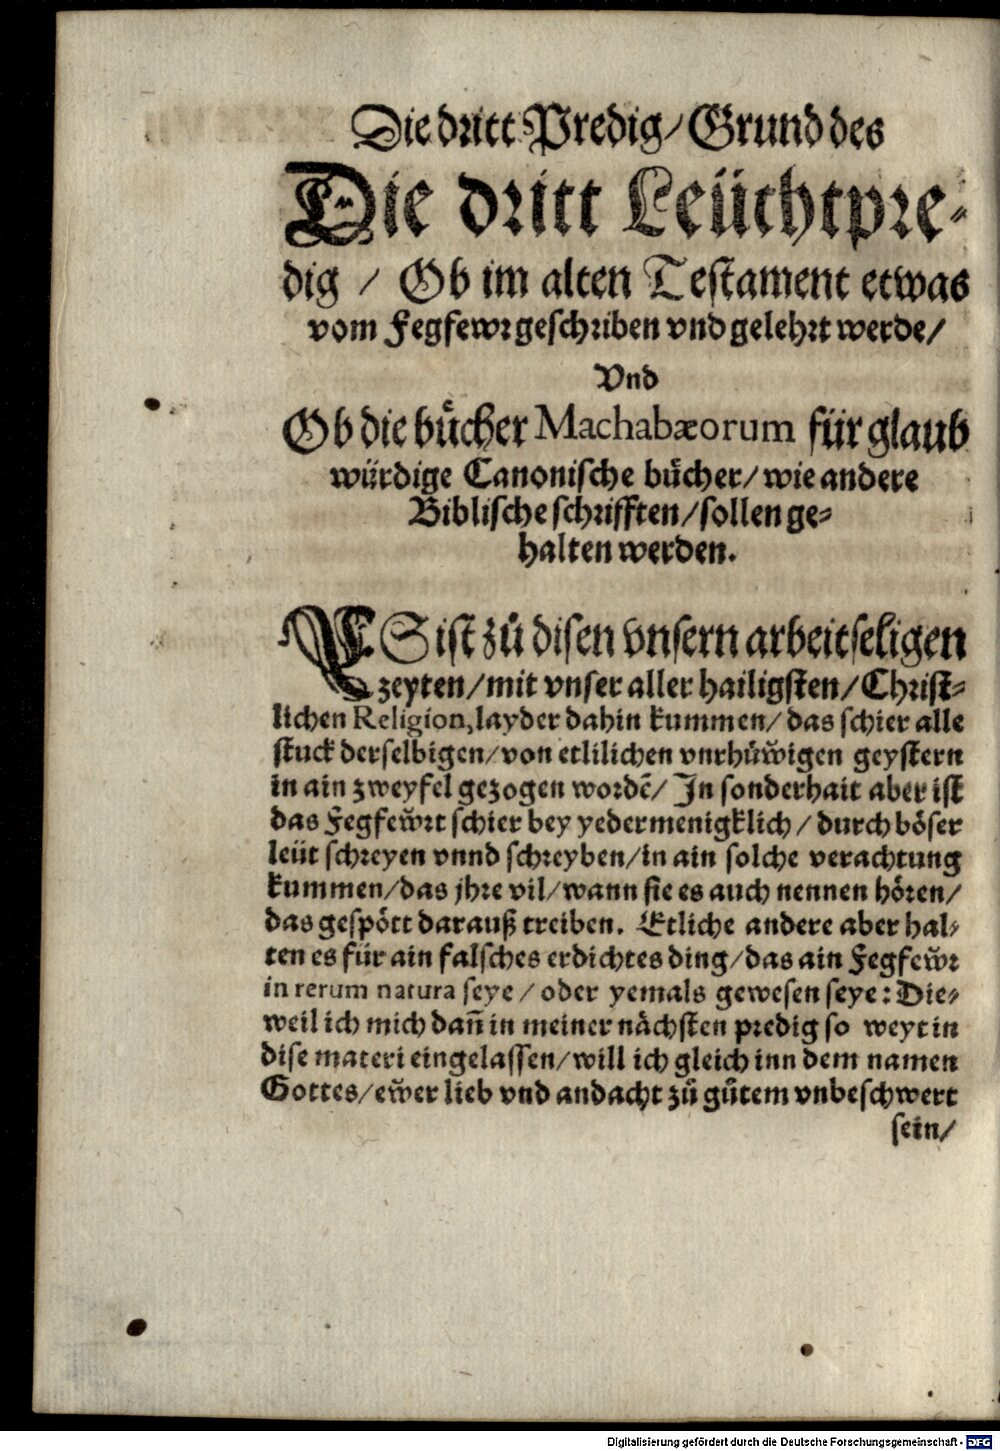 Die dritt Predig/ Grund des
Die dritt Leüchtpre-
dig / Ob im alten Testament etwas
vom Fegfewr geschriben vnd gelehrt werde/
Vnd
Ob die buͤcher Machabæorum für glaub
würdige Canonische buͤcher/ wie andere
Biblische schrifften/ sollen ge-
halten werden.
ES ist zuͦ disen vnsern arbeitseligen
zeyten/ mit vnser aller hailigsten/ Christ-
lichen Religion, layder dahin kummen/ das schier alle
stuck derselbigen/ von etlilichen vnrhuͤwigen geystern
in ain zweyfel gezogen wordē/ In sonderhait aber ist
das Fegfewͤrt schier bey yedermenigklich / durch boͤser
leüt schreyen vnnd schreyben/ in ain solche verachtung
kummen/ das jhre vil/ wann sie es auch nennen hoͤren/
das gespoͤtt darauß treiben. Etliche andere aber hal-
ten es für ain falsches erdichtes ding/ das ain Fegfewͤr
in rerum natura seye / oder yemals gewesen seye: Die-
weil ich mich dañ in meiner naͤchsten predig so weyt in
dise materi eingelassen/ will ich gleich inn dem namen
Gottes/ ewͤer lieb vnd andacht zuͦ guͦtem vnbeschwert
sein/
Digitalisierung gefördert durch die Deutsche Forschungsgemeinschaft - DFG